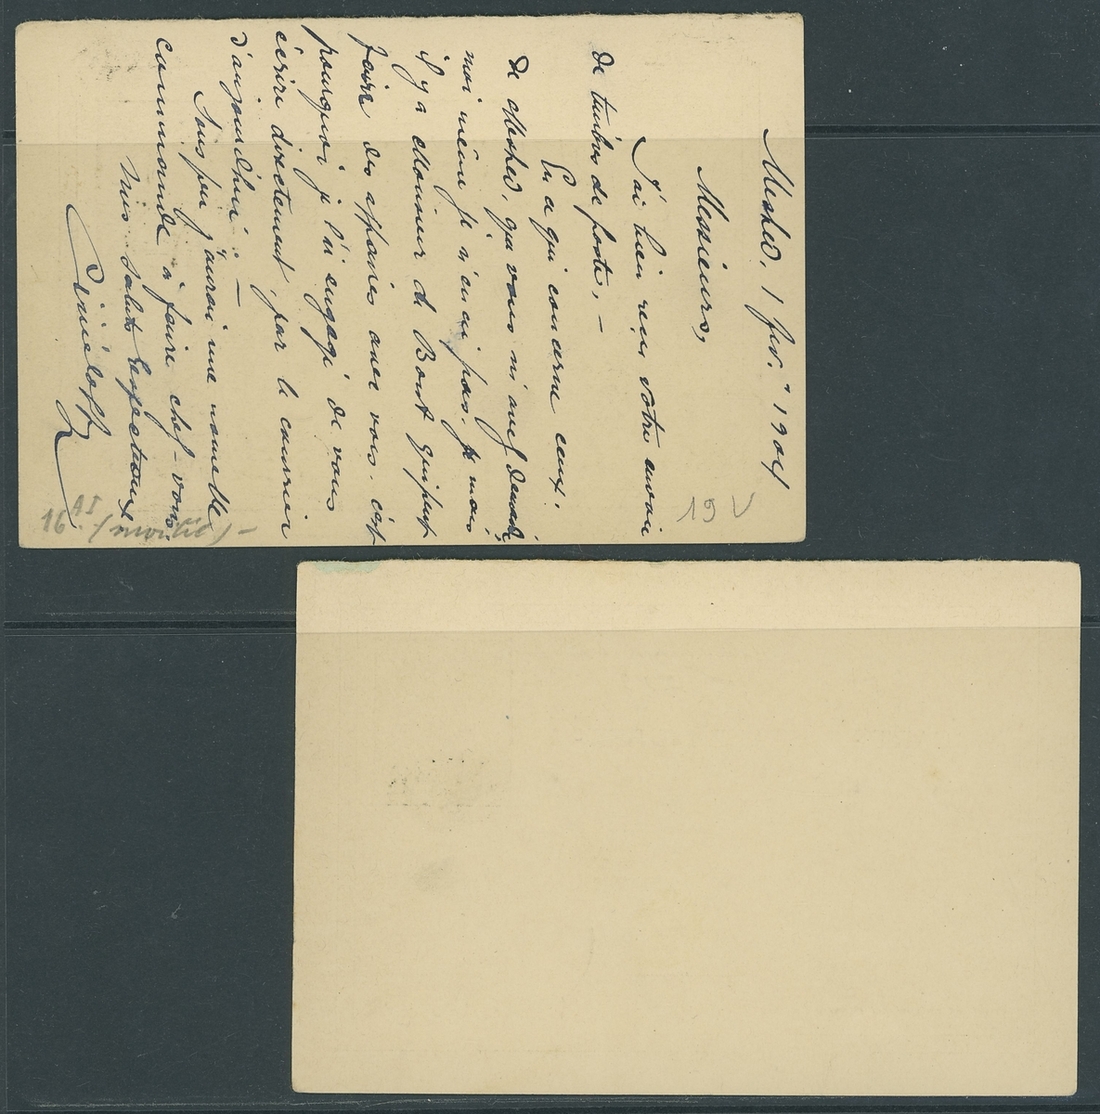 Meshed, 1 fev. 1904
Messieurs,
J'ai bien reçu votre envoi
de timbres de poste, —
En a qui concerne ceux,
de Meshed, que vous m'avez
moi même je n'en ai pas. mais
il y a Monsieur de Bont
faire des affaires avec vous. c'est
pourquoi je l'ai engagé de vous
écrire directement par le courrier
d'aujourdhui —
Sous peu j'aurai une nouvelle
commande à faire chez-vous
Mes saluts respectueux
19 V
16 AI (moitié) —